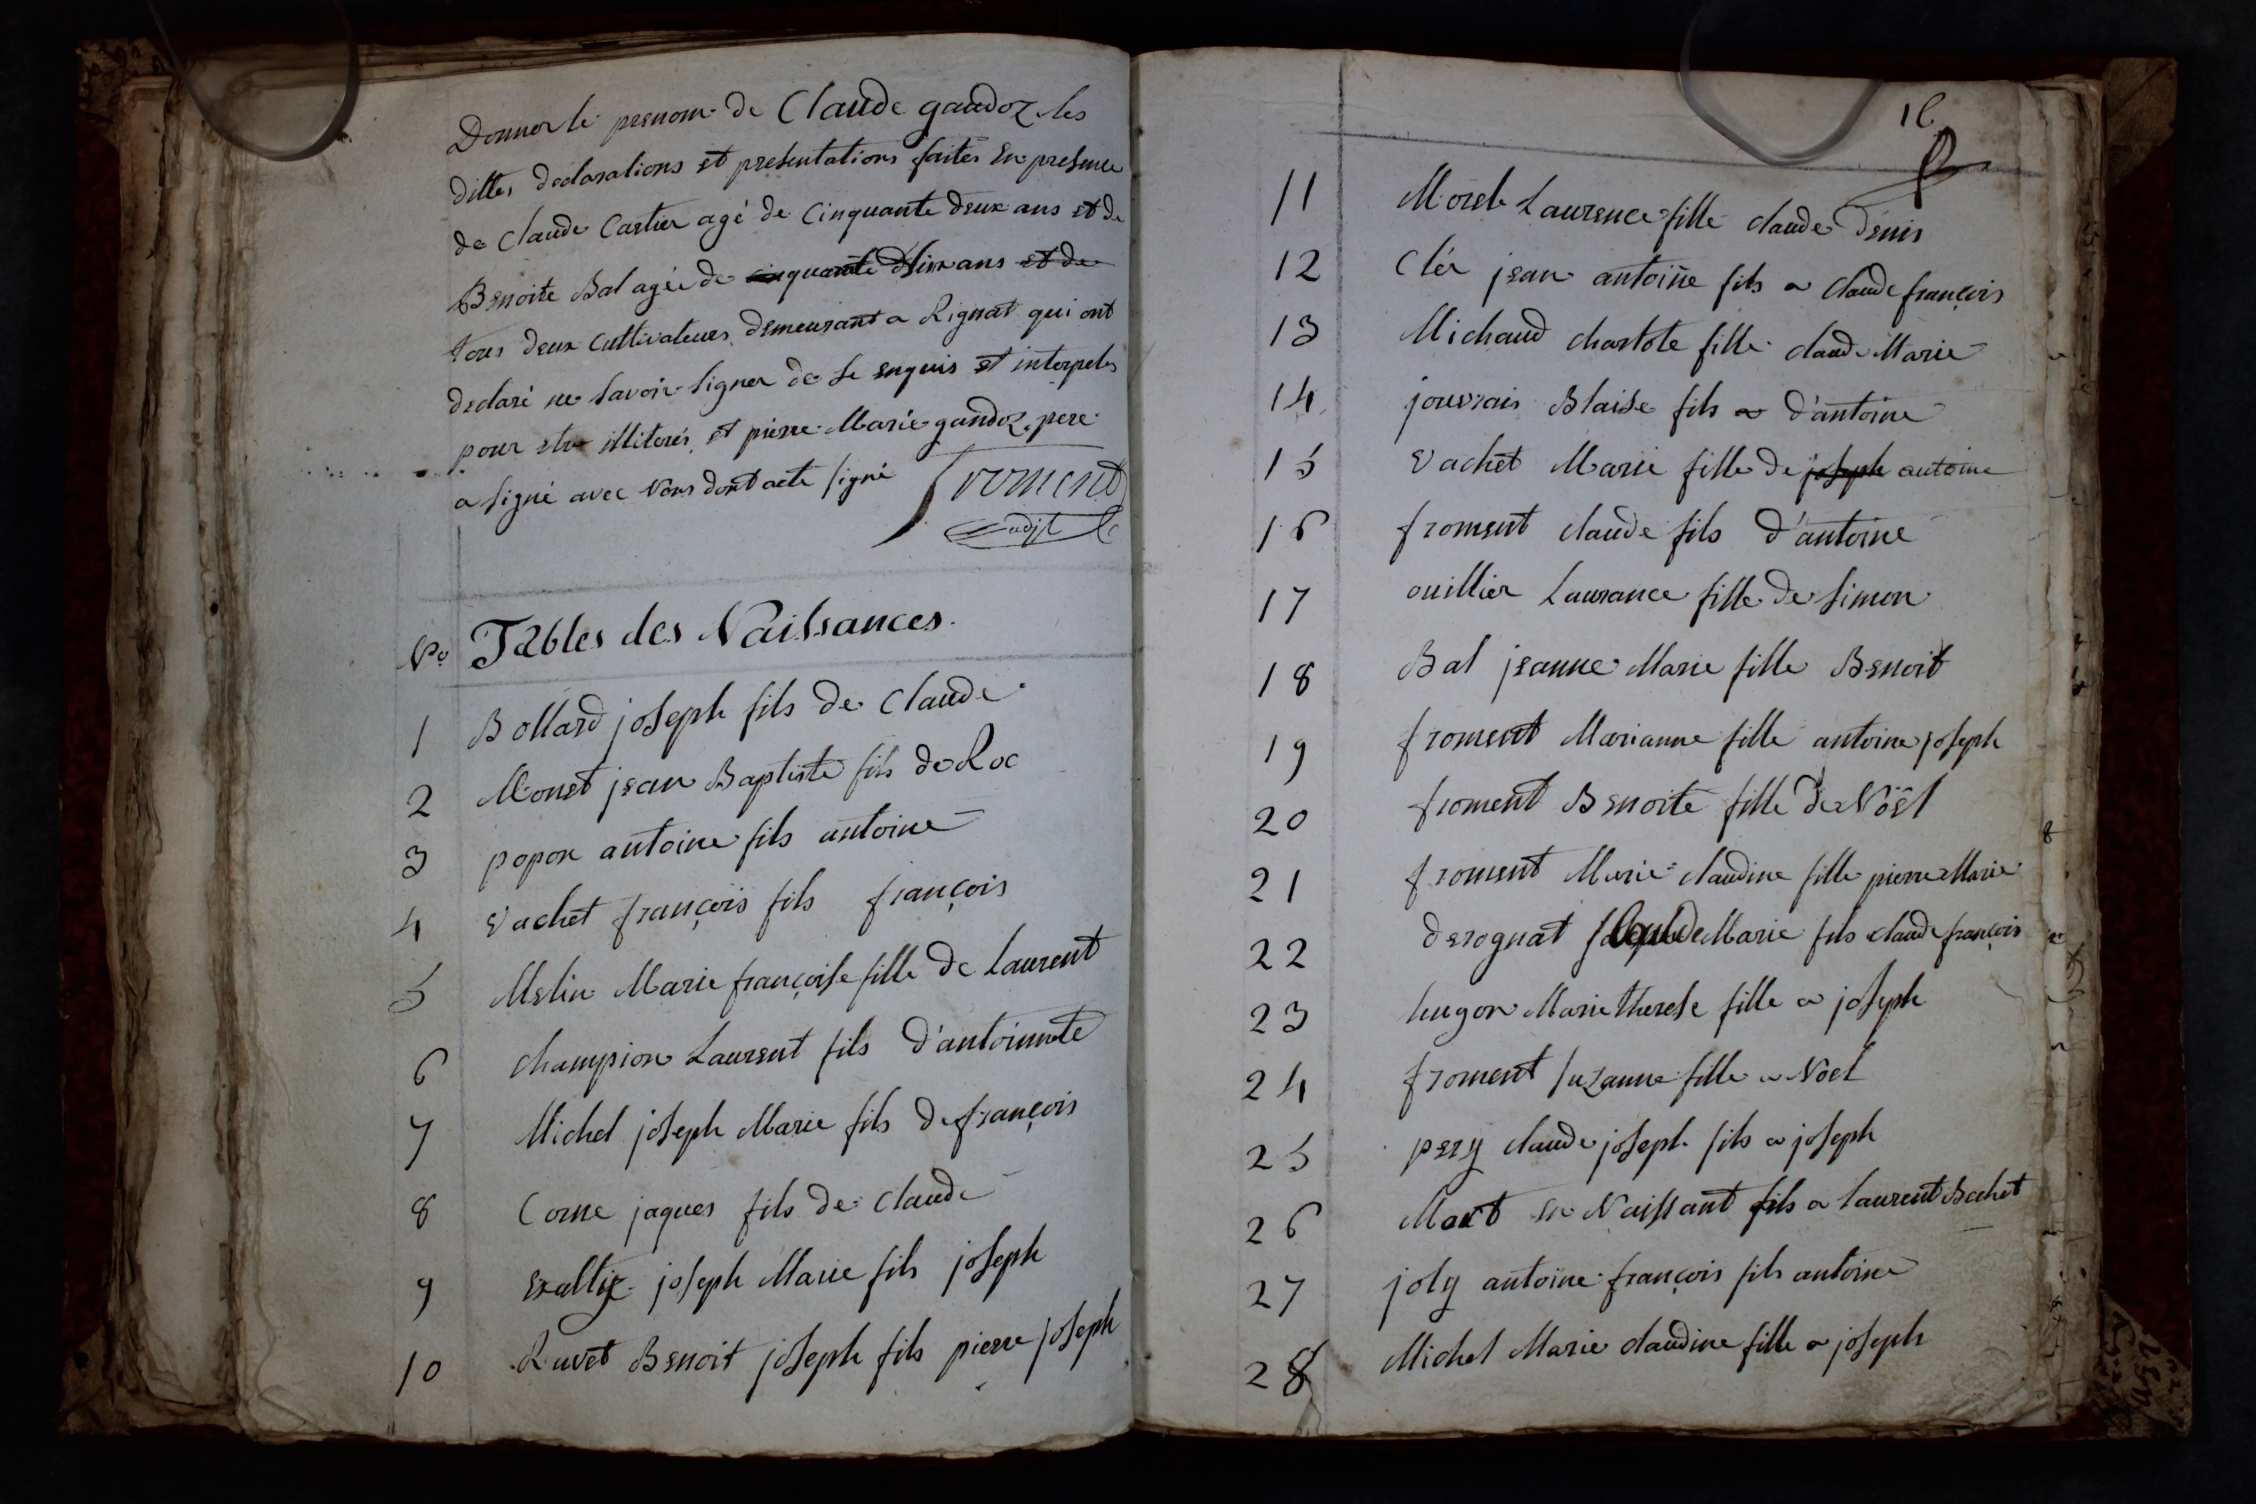 Donner le prenom de Claude gaudoz les
dittes declarations et presentations faites En presence
de Claude Cartier agé de Cinquante deux ans et de
Benoite Bal agée de cinquante ans et de
tous deux cultivateurs demeurant a Rignat qui ont
declaré ne Savoir Signer de Ce enquis et interpelés
pour etre illiterés, et pierre Marie gandoz pere
a Signé avec Nous dont acte Signé froment
adjt
No Tables des Naissances.
1 Bollard joseph fils de Claude
2 Monet jean Baptiste fils de Roc
3 popon antoine fils antoine
4 Vachet françois fils françois
5 Melin Marie françoise fille de Laurent
6 Champion Laurent fils d'antoinnete
7 Michel joseph Marie fils de françois
8 Corne jaques fils de Claude
9 joseph Marie fils joseph
10 Ruvet Benoit joseph fils pierre joseph
16
11 Morel Laurence fille claude Denis
12 Clér jean antoine fils a Claude françois
13 Michaud charlote fille claude Marie
14 jouvrais Blaise fils a d'antoine
15 Vachet Marie fille de joseph antoine
16 froment claude fils d'antoine
17 ouillier Laurance fille de Simon
18 Bal jeanne Marie fille Benoit
19 froment Marianne fille antoine joseph
20 froment Benoite fille de Nöël
21 froment Marie claudine fille pierre Marie
22 derognat Claude Marie fils claude françois
23 hugon Marie therese fille a joseph
24 froment Suzanne fille a Noel
25 pery claude joseph fils a joseph
26 Mort en Naissant fils a Laurent Bachet
27 joly antoine françois fils antoine
28 Michel Marie claudine fille a joseph